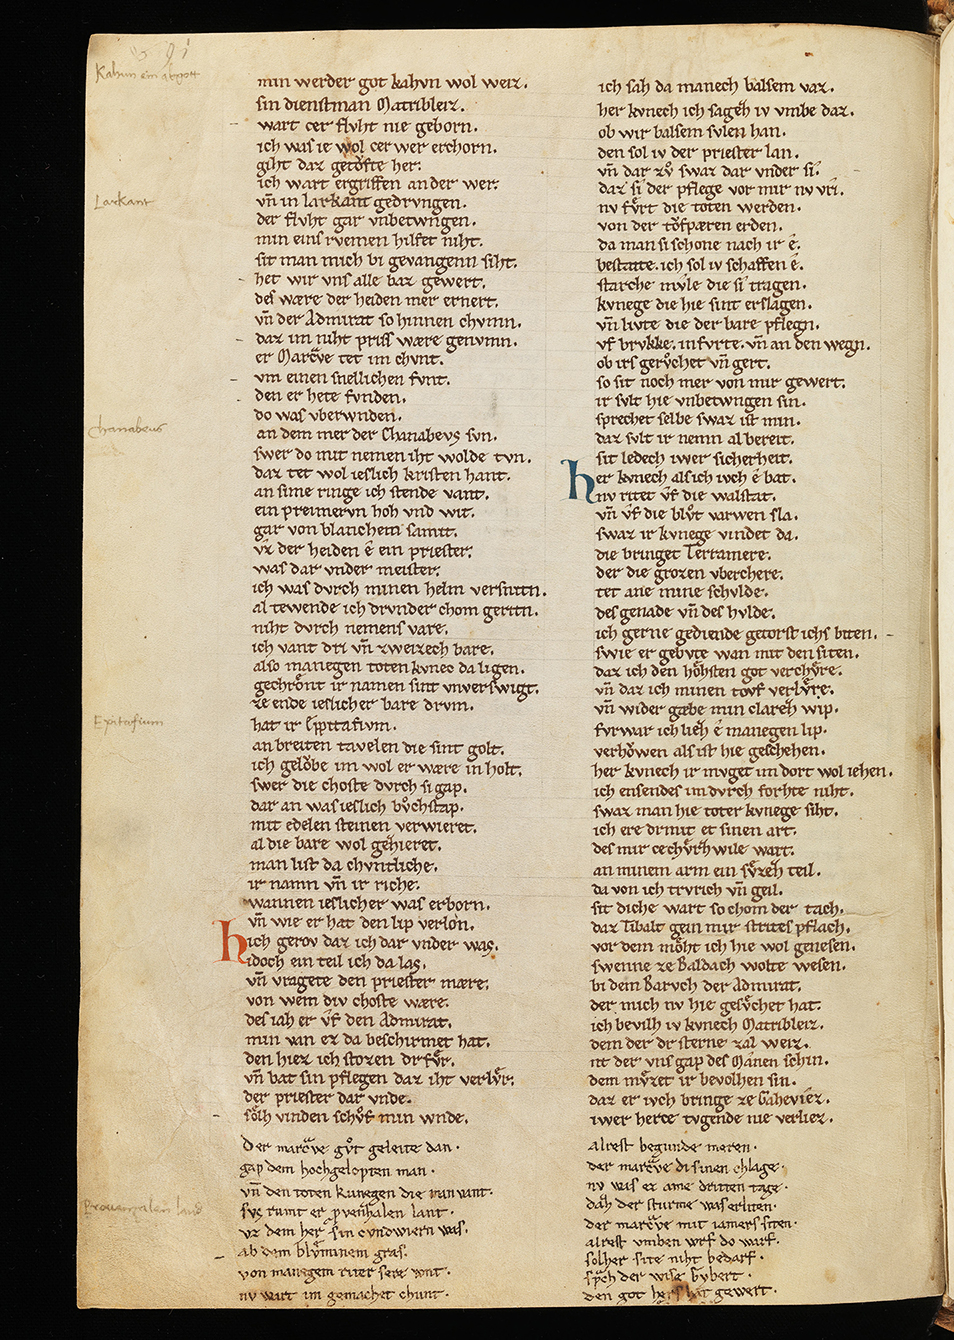 91
Kahun ein abgott
min werder got kahvn wol weiz.
sin dienstman Matribleiz.
wart cer flvht nie geborn.
ich was ie wol cer wer erchorn.
giht daz getoͮfte her.
ich wart ergriffen an der wer.
Larkant
vn̄ in larkant gedrvngen.
der flvht gar vnbetwngen.
min eins rvemen hilfet niht.
sit man mich bi gevangenn siht.
het wir vns alle baz gewert.
des wære der heiden mer ernert.
vn̄ der Admirat so hinnen chvmn.
daz im niht priss wære genvmn.
er Marcͣve tet im chvnt.
vm einen snellichen fvnt.
den er hete fvnden.
do was vberwnden.
Chanabeus
an dem mer der Chanabevs svn.
swer do mit nemen iht wolde tvn.
daz tet wol ieslich kristen hant.
an sime ringe ich stende vant.
ein preimervn hoh vnd wit.
gar von blanchem samit.
vz der heiden ê ein priester.
was dar vnder meister.
ich was dvrch minen helm versnitn.
al tewende ich drvnder chom geritn.
niht dvrch nemens vare.
ich vant dri vn̄ zweizech bare.
also manegen toten kvnec da ligen.
gechroͤnt ir namen sint vnverswigt.
ze ende ieslicher bare drvm.
Epitafium
hat ir Epitafivm.
an breiten tavelen die sint golt.
ich geloͮbe im wol er wære in holt.
swer die choste dvrch si gap.
dar an was ieslich bvͦchstap.
mit edelen steinen verwieret.
al die bare wol gehieret.
man list da chvntliche.
ir namn vn̄ ir riche.
wannen ieslicher was erborn.
vn̄ wie er hat den lip verlorn.
hich gerov daz ich dar vnder was.
idoch ein teil ich da las.
vn̄ vragete den priester mære.
von wem div choste wære.
des iah er vͦf den Admirat.
min van ez da beschirmet hat.
den hiez ich stozen dr fvͤr.
vn̄ bat sin pflegen daz iht verlvͤr.
der priester dar vnde.
soͤlh vinden schvͦf min wnde.
Der marcͣve gvͦt geleite dan.
gap dem hochgelopten man.
vn̄ den toten kunegen die man vant.
Provenzalen land
svs rvmt er pvenzalen lant.
vz dem her sin cvndwiern was.
ab dem blvͤminem gras.
von manegem riter sere wnt.
nv wart im gemachet chunt.
ich sah da manech balsem vaz.
her kvnech ich sageh iv vmbe daz.
ob wir balsem svlen han.
den sol iv der priester lan.
vn̄ dar zvͦ swaz dar vnder si.
daz si der pflege vor mir nv vri.
nv fvͤrt die toten werden.
von der toͮfpæren erden.
da man si schone nach ir ê.
bestatte. ich sol iv schaffen ê.
starche mvle die si tragen.
kvnege die hie sint erslagen.
vn̄ livte die der bare pflegn.
vf brvkke. in fvrte. vn̄ an den wegn.
ob irs gervͦchet vn̄ gert.
so sit noch mer von mir gewert.
ir svlt hie vnbetwngen sin.
sprechet selbe swaz ist min.
daz svlt ir nemn al bereit.
sit ledech iwer sicherheit.
her kvnech als ich ivch ê bat.
nv ritet vͦf die walstat.
vn̄ vͦf die blvͦt varwen sla.
swaz ir kvnege vindet da.
die bringet Terramere.
der die grozen vberchere.
tet ane mine schvlde.
des genade vn̄ des hvlde.
ich gerne gediende getorst ichs biten.
swie er gebvte wan mit den siten.
daz ich den hoͤhsten got verchvͤre.
vn̄ daz ich minen tovf verlvͤre.
vn̄ wider gæbe min clareh wip.
fvrwar ich lieh ê manegen lip.
verhoͮwen als ist hie geschehen.
her kvnech ir mvget im dort wol iehen.
ich ensendes im dvrch forhte niht.
swaz man hie toter kvnege siht.
ich ere dr mit et sinen art.
des mir ce chvͤrh wile wart.
an minem arm ein svͤzeh teil.
da von ich trvrich vn̄ geil.
sit diche wart so chom der tach.
daz Tibalt gein mir strites pflach.
vor dem moͤht ich hie wol genesen.
swenne ze Baldach wolte wesen.
bi dem Barvch der Admirat.
der mich nv hie gesvͦchet hat.
ich bevilh iv kvnech Matribleiz.
dem der dr sterne zal weiz.
nt der vns gap des Manen schin.
dem mvͤzet ir bevolhen sin.
daz er ivch bringe ze Gaheviez.
iwer herce tvgende nie verliez.
alrest begunde meren.
der marcͣve di sinen chlage.
nv was ez ame dritten tage.
dah der sturme was erliten.
der marcͣve mit iamers siten.
alrest vmben wrf do warf.
solher site niht bedarf.
spͣch der wise Gybert.
den got hers hat gewert.